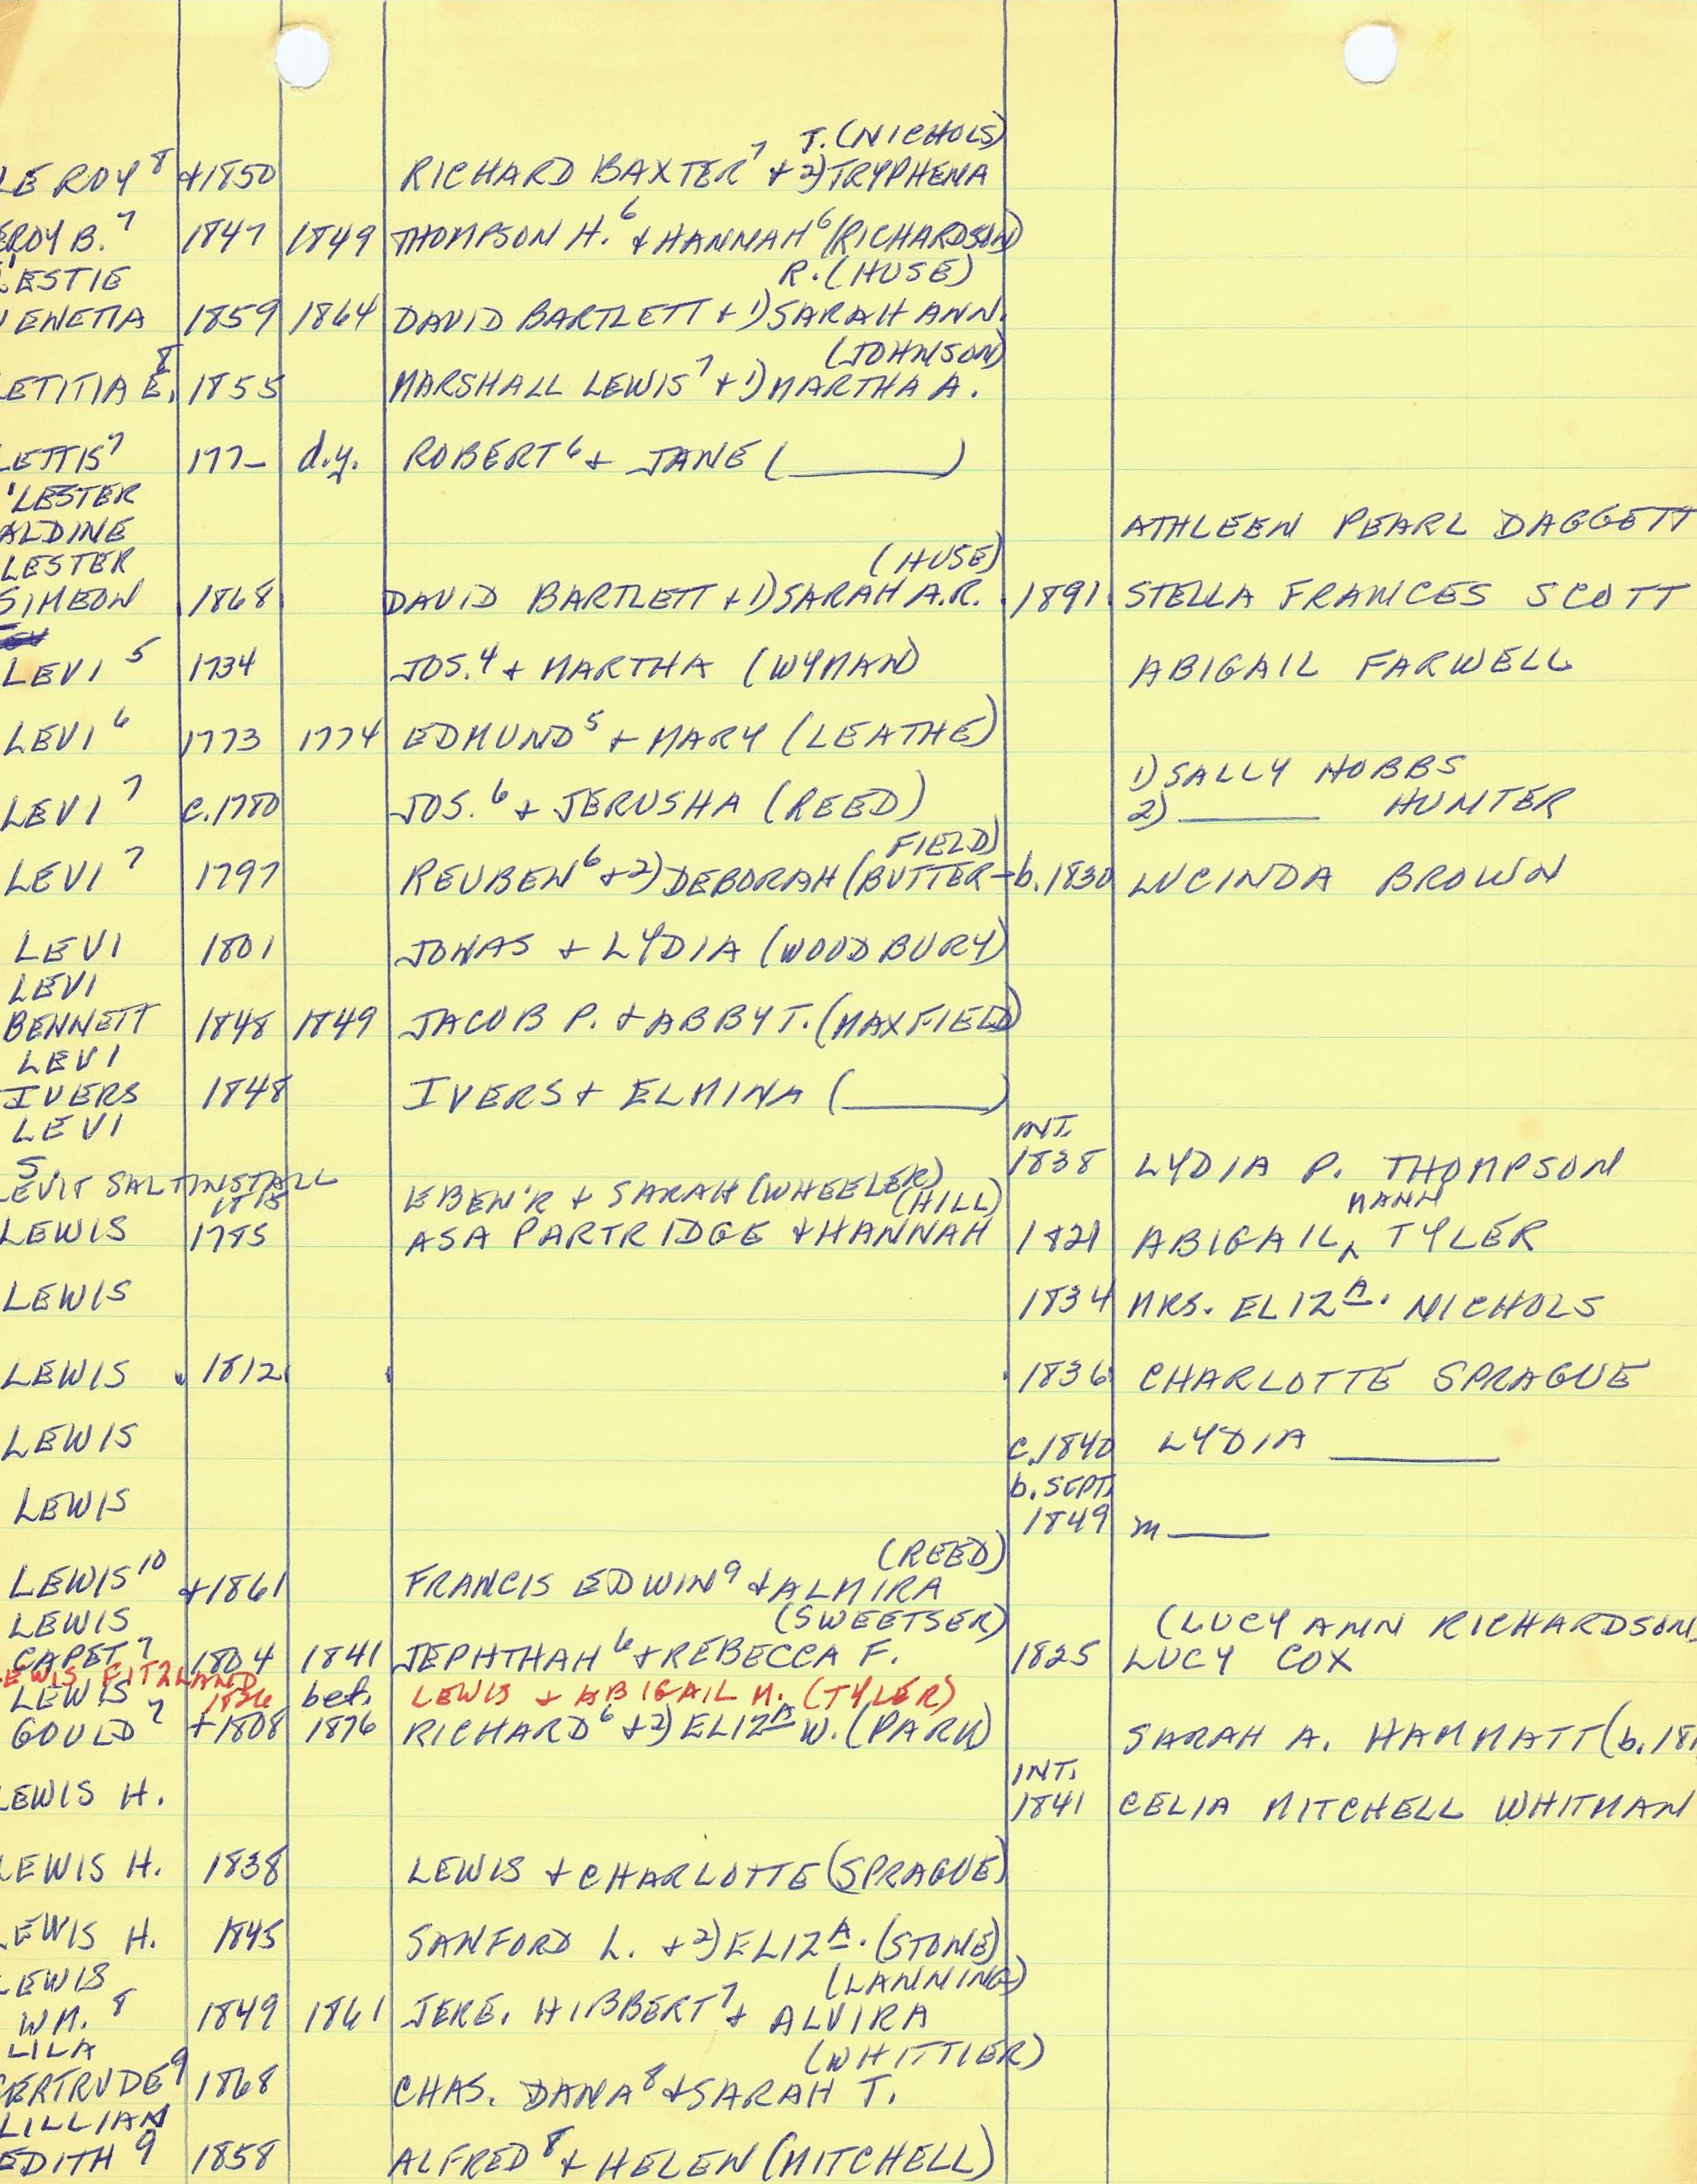 T. (NICHOLS)
LE ROY⁸ +1850 RICHARD BAXTER⁷ + 2) TRYPHENA
EROY B.⁷ 1847 1849 THOMPSON H.⁶ + HANNAH⁶ (RICHARDSON)
LESTIE R. (HUSE)
VENETIA 1859 1864 DAVID BARTLETT + 1) SARAH ANN.
(JOHNSON)
LETITIA E.⁸ 1855 MARSHALL LEWIS⁷ + 1) MARTHA A.
LETTIS⁷ 177_ d.y. ROBERT⁶ + JANE (______)
LESTER
ALDINE ATHLEEN PEARL DAGGETT
LESTER (HUSE)
SIMEON 1868 DAVID BARTLETT + 1) SARAH A.R. 1891 STELLA FRANCES SCOTT
LEVI⁵ 1734 JOS.⁴ + MARTHA (WYMAN) ABIGAIL FARWELL
LEVI⁶ 1773 1774 EDMUND⁵ + MARY (LEATHE)
1) SALLY HOBBS
LEVI⁷ c.1780 JOS.⁶ + JERUSHA (REED) 2) ______ HUNTER
FIELD)
LEVI⁷ 1797 REUBEN⁶ + 2) DEBORAH (BUTTER- b.1830 LUCINDA BROWN
LEVI 1801 JONAS + LYDIA (WOODBURY)
LEVI
BENNETT 1848 1849 JACOB P. + ABBY T. (MAXFIELD)
LEVI
IVERS 1848 IVERS + ELMINA (______)
LEVI INT.
S 1838 LYDIA P. THOMPSON
LEVIT SALTINSTALL 1815 EBEN'R + SARAH (WHEELER)
(HILL) MANN
LEWIS 1785 ASA PARTRIDGE + HANNAH 1821 ABIGAIL ^ TYLER
LEWIS 1834 MRS. ELIZA. NICHOLS
LEWIS 1812 1836 CHARLOTTE SPRAGUE
LEWIS c.1840 LYDIA ______
b. SEPT.
LEWIS 1849 m ______
(REED)
LEWIS¹⁰ +1861 FRANCIS EDWIN⁹ + ALMIRA
LEWIS (SWEETSER) (LUCY ANN RICHARDSON
CAPET⁷ 1804 1841 JEPHTHAH⁶ + REBECCA F. 1825 LUCY COX
LEWIS FITZLAND 1826 LEWIS + ABIGAIL M. (TYLER)
LEWIS bef.
GOULD⁷ +1808 1876 RICHARD⁶ + 2) ELIZA W. (PARK) SARAH A. HAMMATT (b. 181
INT.
LEWIS H. 1841 CELIA MITCHELL WHITMAN
LEWIS H. 1838 LEWIS + CHARLOTTE (SPRAGUE)
LEWIS H. 1845 SANFORD L. + 2) ELIZA. (STONE)
LEWIS (LANNING)
WM.⁸ 1849 1861 JERE. HIBBERT⁷ + ALVIRA
LILA (WHITTIER)
GERTRUDE⁹ 1868 CHAS. DANA⁸ + SARAH T.
LILLIAN
EDITH⁹ 1858 ALFRED⁸ + HELEN (MITCHELL)